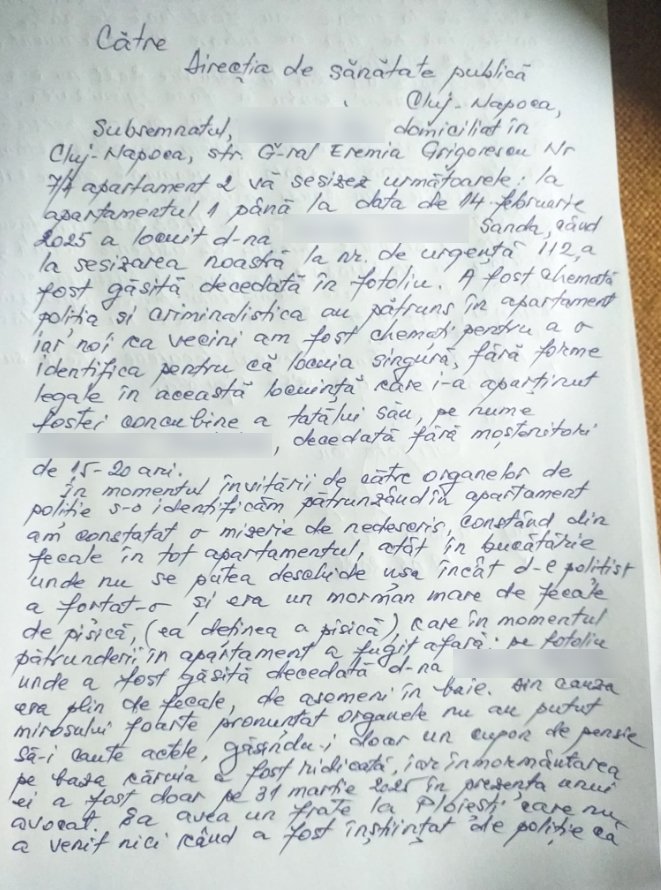 Către
Direcția de sănătate publică
Cluj-Napoca,
Subsemnatul, domiciliat în
Cluj-Napoca, str. G-ral Eremia Grigorescu Nr
apartament 2 vă sesizez următoarele: la
apartamentul 1 până la data de 14 februarie
2025 a locuit d-na Sanda, când
la sesizarea noastră la nr. de urgență 112, a
fost găsită decedată în fotoliu. A fost chemată
poliția si criminalistica au pătruns în apartament
iar noi, ca vecini am fost chemați pentru a o
identifica pentru că locuia singură, fără forme
legale în această locuință care i-a aparținut
fostei concubine a tatălui său, pe nume
, decedată fără moștenitori
de 15-20 ani.
În momentul invitării de către organelor de
poliție s-o identificăm pătrunzând în apartament
am constatat o mizerie de nedescris, constând din
fecale în tot apartamentul, atât în bucătărie
unde nu se putea deschide ușa încât d-l polițist
a forțat-o și era un morman mare de fecale
de pisică, (ea deținea a pisică), care în momentul
pătrunderii în apartament a fugit afară. pe fotoliu
unde a fost găsită decedată d-na
era plin de fecale, de asemeni în baie. Din cauza
mirosului foarte pronunțat organele nu au putut
să-i caute actele, găsindu-i doar un cupon de pensie
pe baza căruia a fost ridicată, iar înmormântarea
ei a fost doar pe 31 martie 2025 în prezența unui
avocat. Ea avea un frate la Ploiești care nu
a venit nici când a fost înștiințat de poliție că